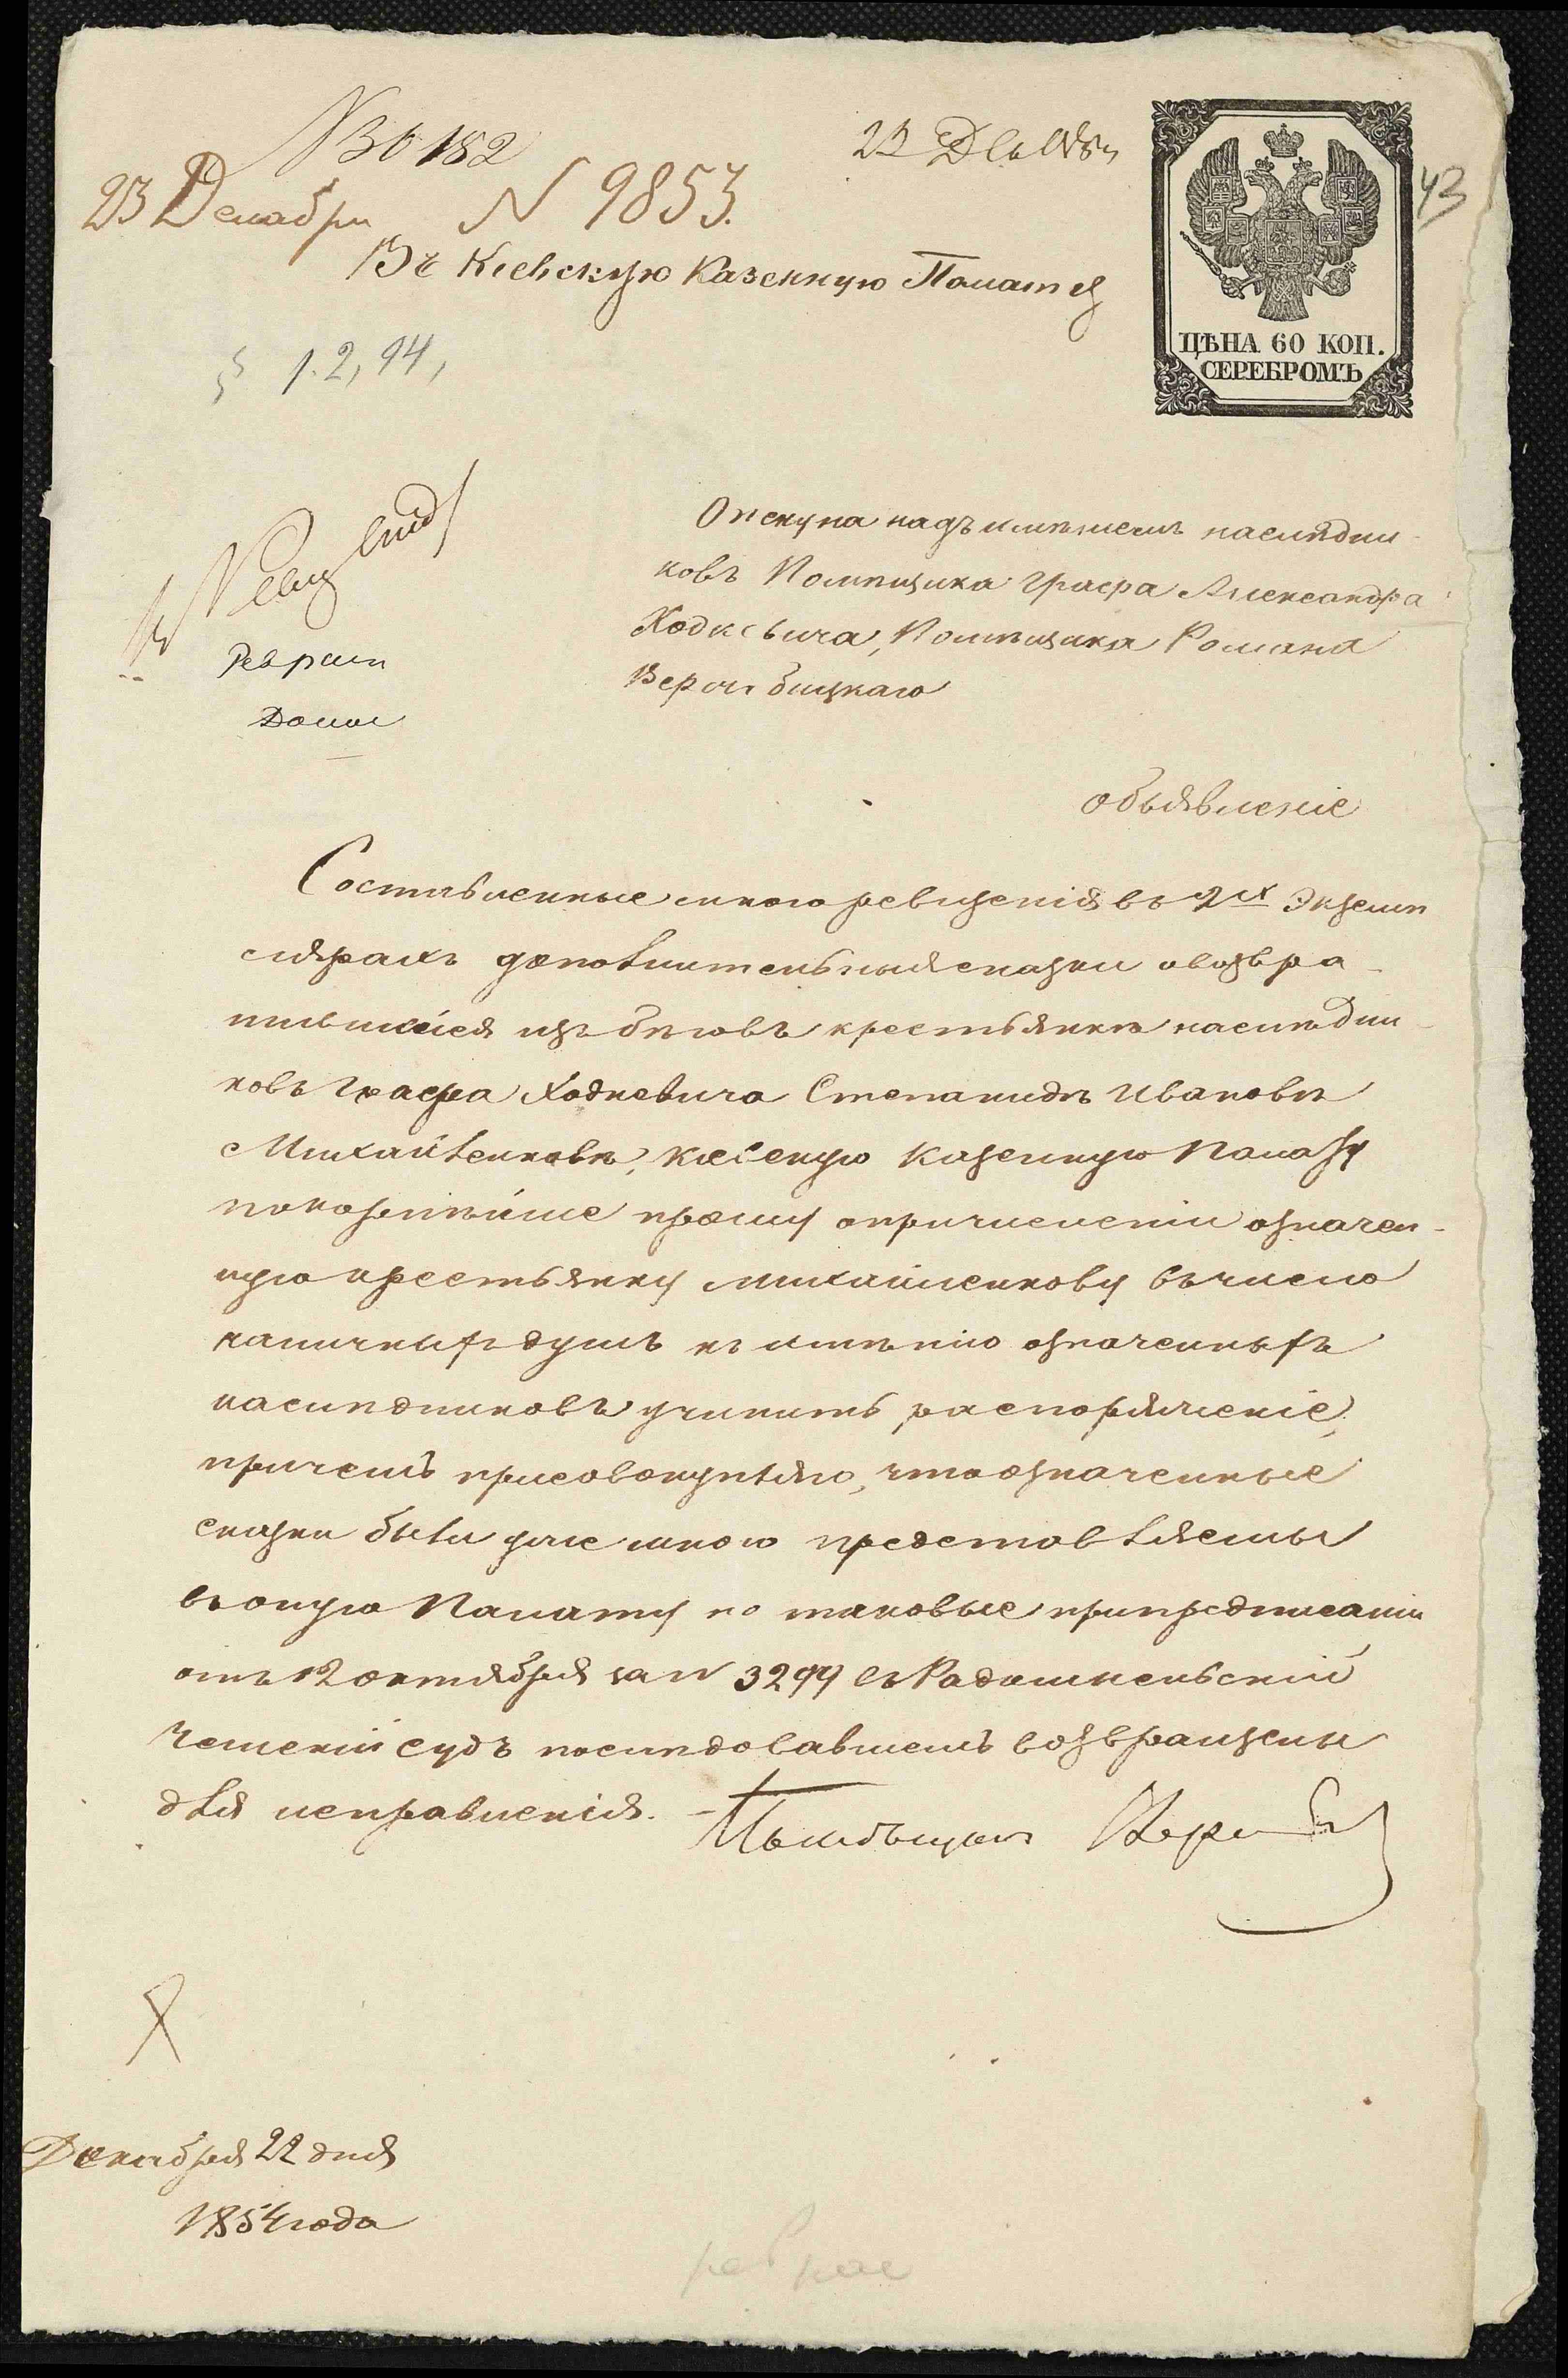 182
23 Декабря N 9853.
43
Въ Кіевскую Казенную Палату
ЦѢНА 60 КОП.
СЕРЕБРОМЪ
§ 1.2, 94,
Опекуна надъ имѣніемъ наслѣдни-
ковъ Помѣщика Графа Александра
Ходкевича, Помѣщика Романа
объявленіе
Составленные мною въ 2х Экземп
лярахъ дополнительныя сказки о возвра-
тившейся изъ бѣговъ крестьянкѣ наслѣдни-
ковъ Графа Ходкевича Степанидѣ Ивановѣ
Михайленковѣ, Казенную Палату
покорнѣйше прошу о причисленіи означен-
ную крестьянку Михайленкову въ число
наличныхъ душъ къ имѣнію означенныхъ
наслѣдниковъ учинить распоряженіе,
причемъ присовокупляю, что означенные
сказки были уже мною представляемы
въ оную Палату но таковые при предписаніи
отъ 12 октября за N 3299 въ Радомысльскій
Земскій судъ послѣдовавшемъ возвращены
для исправленія.
Декабря 22 дня
1854 года